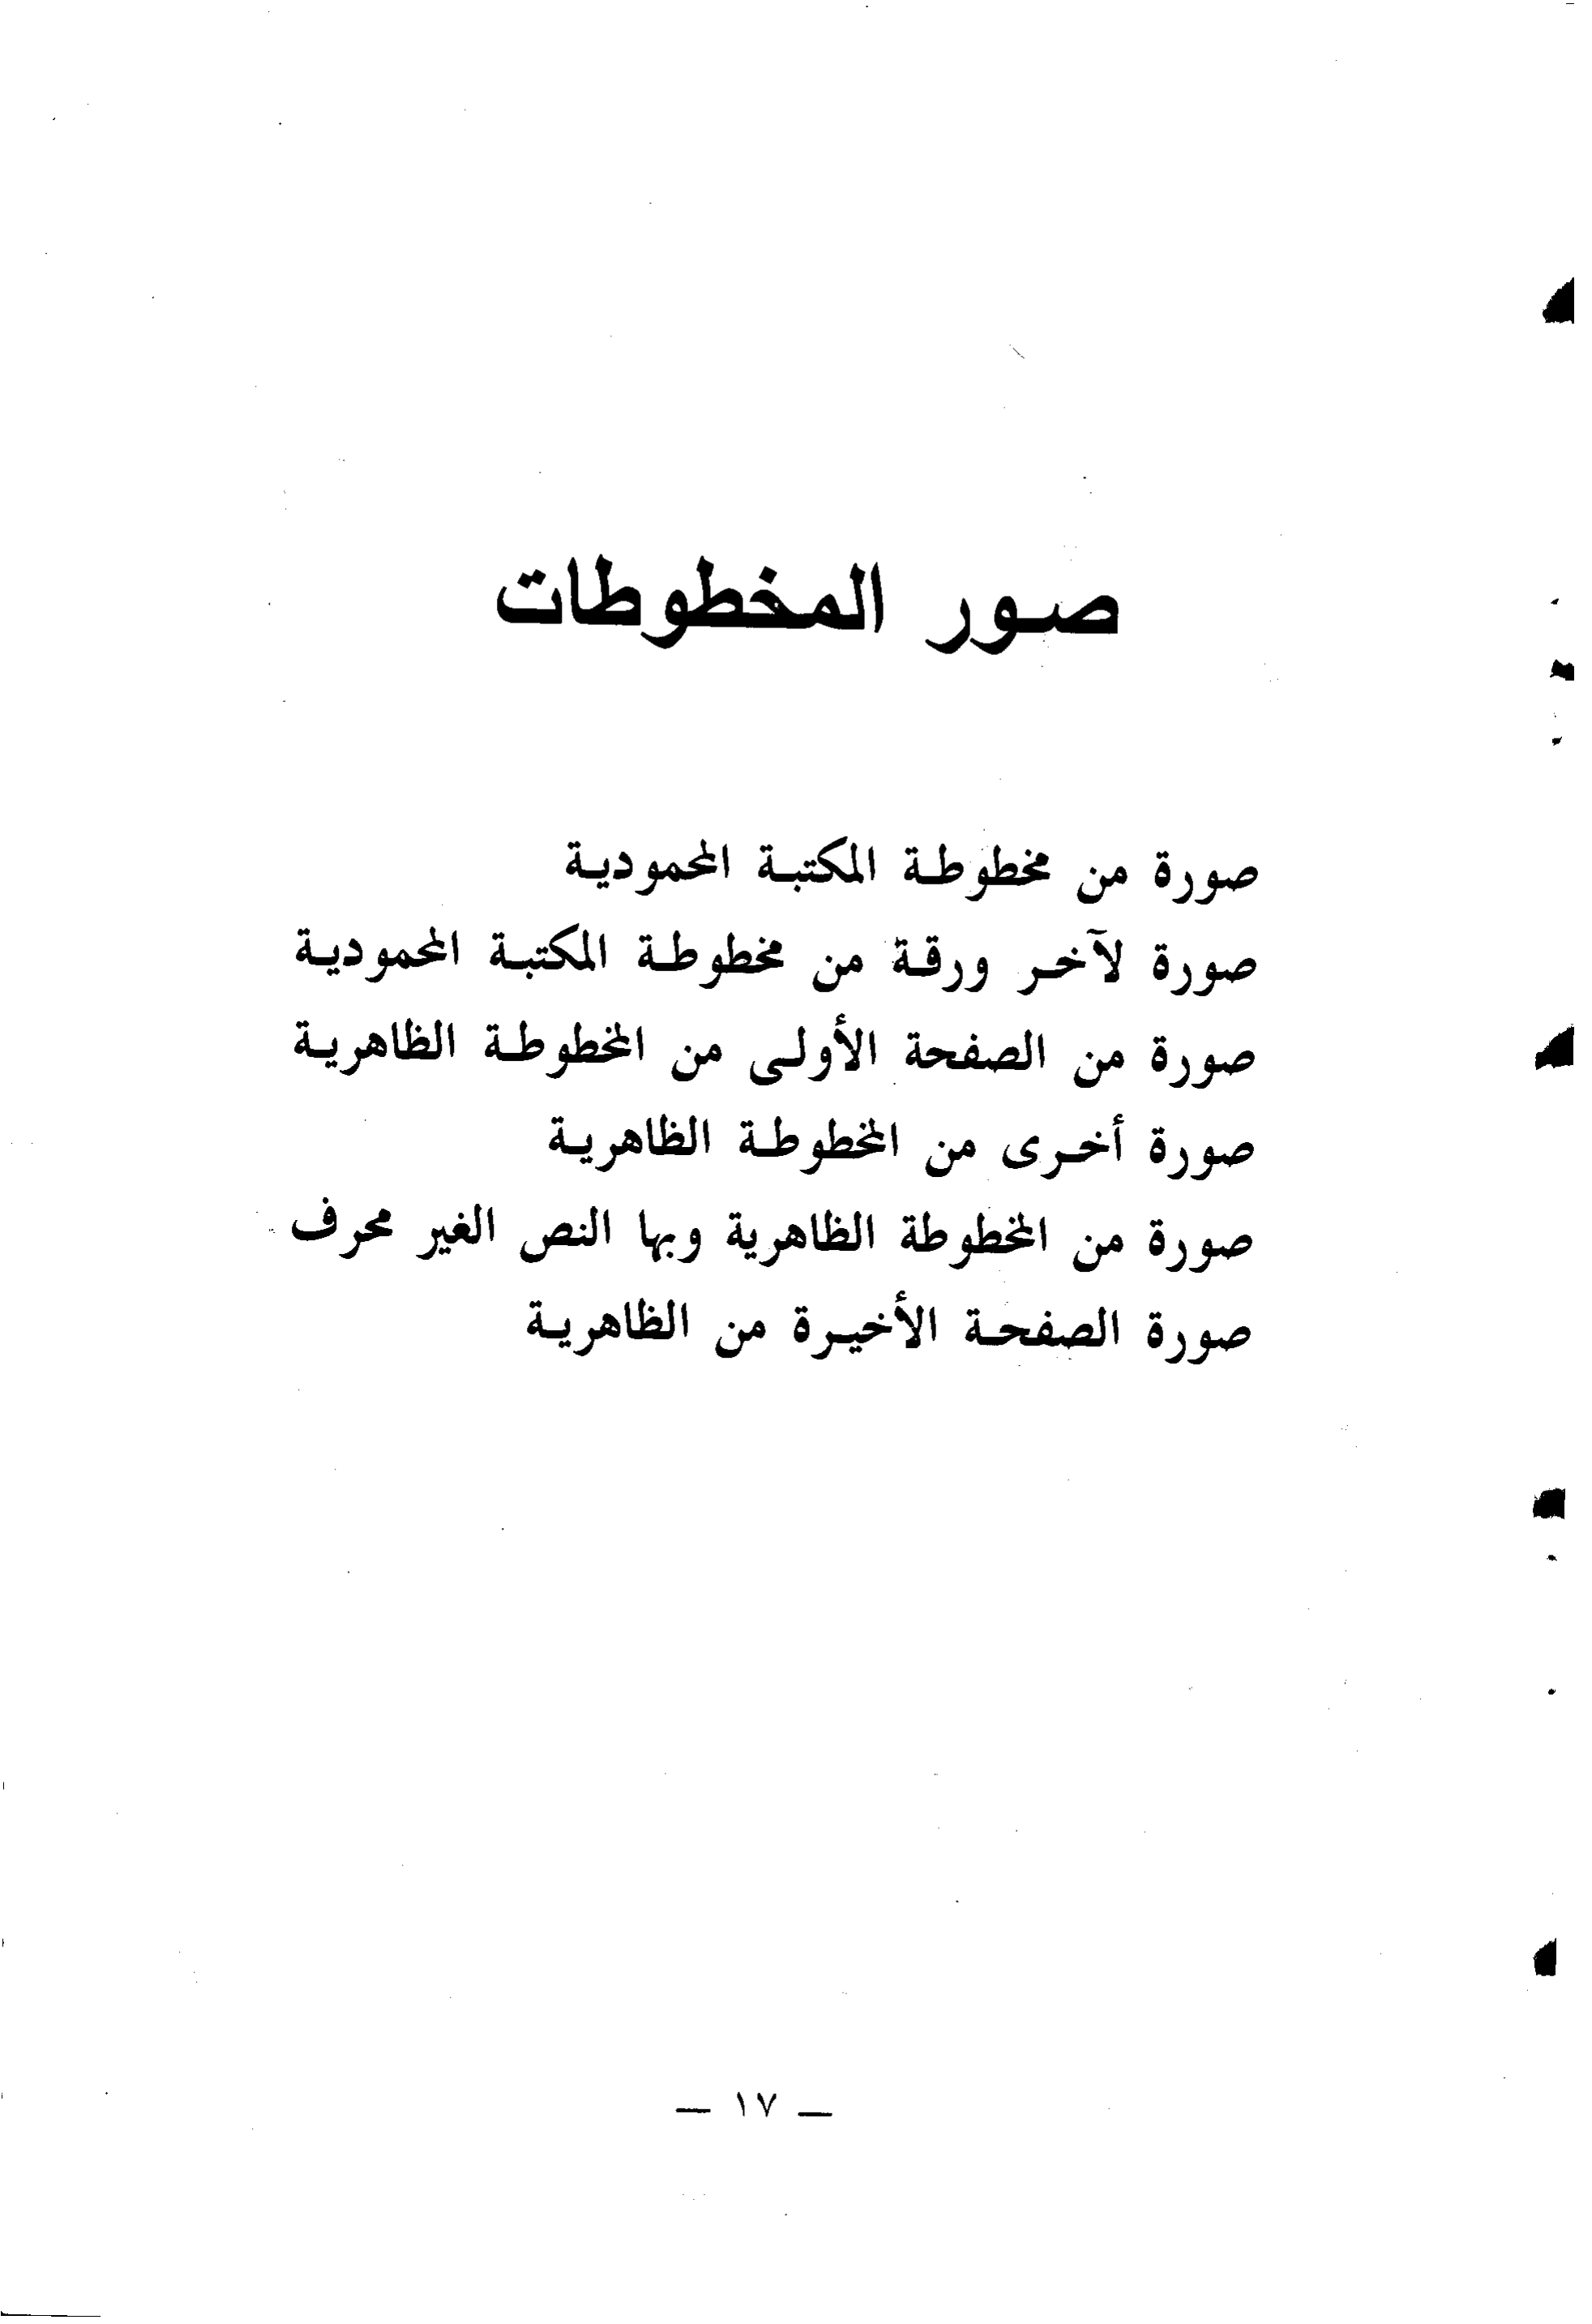 صور المخطوطات
صورة من مخطوطة المكتبة المحمودية
صورة لآخر ورقة من مخطوطة المكتبة المحمودية
صورة من الصفحة الأولى من المخطوطة الظاهرية
صورة أخرى من المخطوطة الظاهرية
صورة من المخطوطة الظاهرية وبها النص الغير محرف
صورة الصفحة الأخيرة من الظاهرية
— ١٧ —